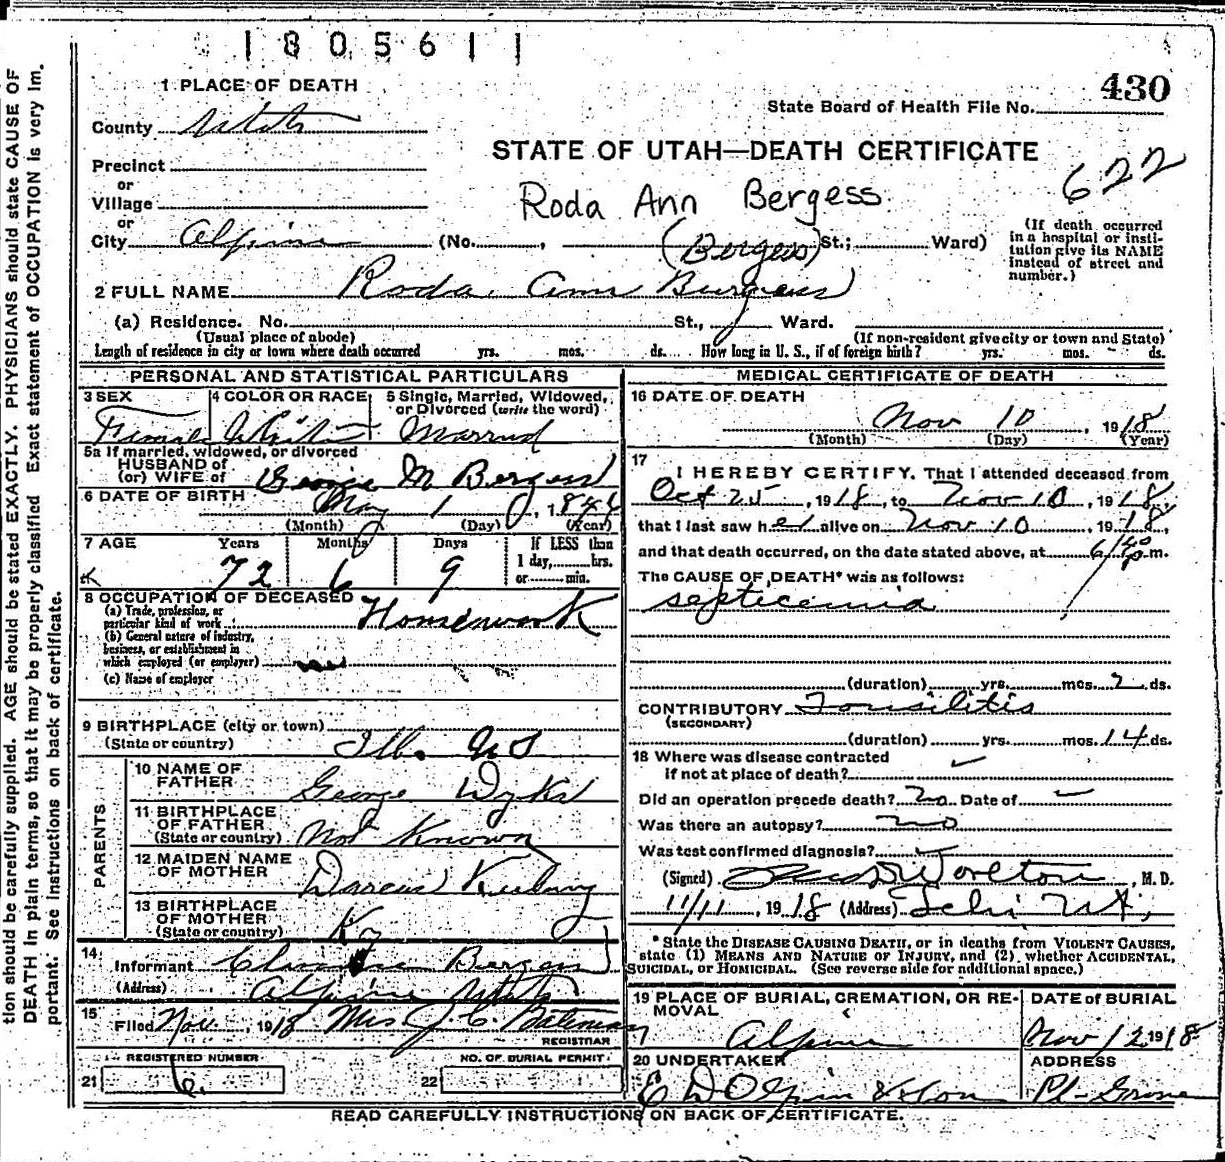 1805611
1 PLACE OF DEATH
430
State Board of Health File No.
County Utah
STATE OF UTAH—DEATH CERTIFICATE
622
Precinct
or
Village
Roda Ann Bergess
or
City Alpine (No. , (Bergess) St.; Ward)
(If death occurred in a hospital or insti-
tution give its NAME instead of street and number.)
2 FULL NAME Roda Ann Burgess
(a) Residence. No. St., Ward.
(Usual place of abode) (If non-resident give city or town and State)
Length of residence in city or town where death occurred yrs. mos. ds. How long in U. S., if of foreign birth? yrs. mos. ds.
PERSONAL AND STATISTICAL PARTICULARS
3 SEX 4 COLOR OR RACE 5 Single, Married, Widowed,
or Divorced (write the word)
Female White Married
5a If married, widowed, or divorced
HUSBAND of
(or) WIFE of George M Bergess
6 DATE OF BIRTH May 1 , 1846
(Month) (Day) (Year)
7 AGE Years Months Days If LESS than
1 day, hrs.
or min.
72 6 9
8 OCCUPATION OF DECEASED
(a) Trade, profession, or
particular kind of work Homework
(b) General nature of industry,
business, or establishment in
which employed (or employer)
(c) Name of employer
9 BIRTHPLACE (city or town)
(State or country) Ill. US
PARENTS
10 NAME OF
FATHER George
11 BIRTHPLACE
OF FATHER
(State or country) Not Known
12 MAIDEN NAME
OF MOTHER
13 BIRTHPLACE
OF MOTHER
(State or country) Ky
14 Informant Bergess
(Address) Alpine Utah
15 Filed Nov. , 1918 Mrs J. C. Bateman
REGISTRAR
REGISTERED NUMBER NO. OF BURIAL PERMIT
21 6. 22
MEDICAL CERTIFICATE OF DEATH
16 DATE OF DEATH
Nov 10 , 1918
(Month) (Day) (Year)
17
I HEREBY CERTIFY, That I attended deceased from
Oct 25 , 1918, to Nov 10 , 1918,
that I last saw her alive on Nov 10 , 1918,
and that death occurred, on the date stated above, at 6/40 p m.
The CAUSE OF DEATH* was as follows:
septicemia
(duration) yrs. mos. 2 ds.
CONTRIBUTORY Tonsilitis
(SECONDARY)
(duration) yrs. mos. 14 ds.
18 Where was disease contracted
if not at place of death?
Did an operation precede death? No Date of
Was there an autopsy? no
Was test confirmed diagnosis?
(Signed) , M. D.
11/11 , 1918 (Address) Lehi Ut,
* State the DISEASE CAUSING DEATH, or in deaths from VIOLENT CAUSES,
state (1) MEANS AND NATURE OF INJURY, and (2) whether ACCIDENTAL,
SUICIDAL, or HOMICIDAL. (See reverse side for additional space.)
19 PLACE OF BURIAL, CREMATION, OR RE-
MOVAL DATE of BURIAL
Alpine Nov 12 1918
20 UNDERTAKER ADDRESS
Pl- Grove
READ CAREFULLY INSTRUCTIONS ON BACK OF CERTIFICATE.
tion should be carefully supplied. AGE should be stated EXACTLY. PHYSICIANS should state CAUSE OF
DEATH in plain terms, so that it may be properly classified Exact statement of OCCUPATION is very im.
portant. See instructions on back of certificate.